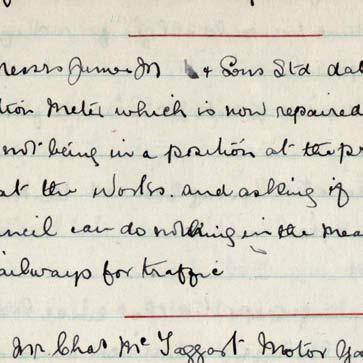 & Sons Ltd dat
tion Meter which is now repaired
not being in a position at the pr
at the Works. and asking if
uncil can do nothing in the mea
ailways for traffic
Mr. Chas Mc Taggart Motor Ga